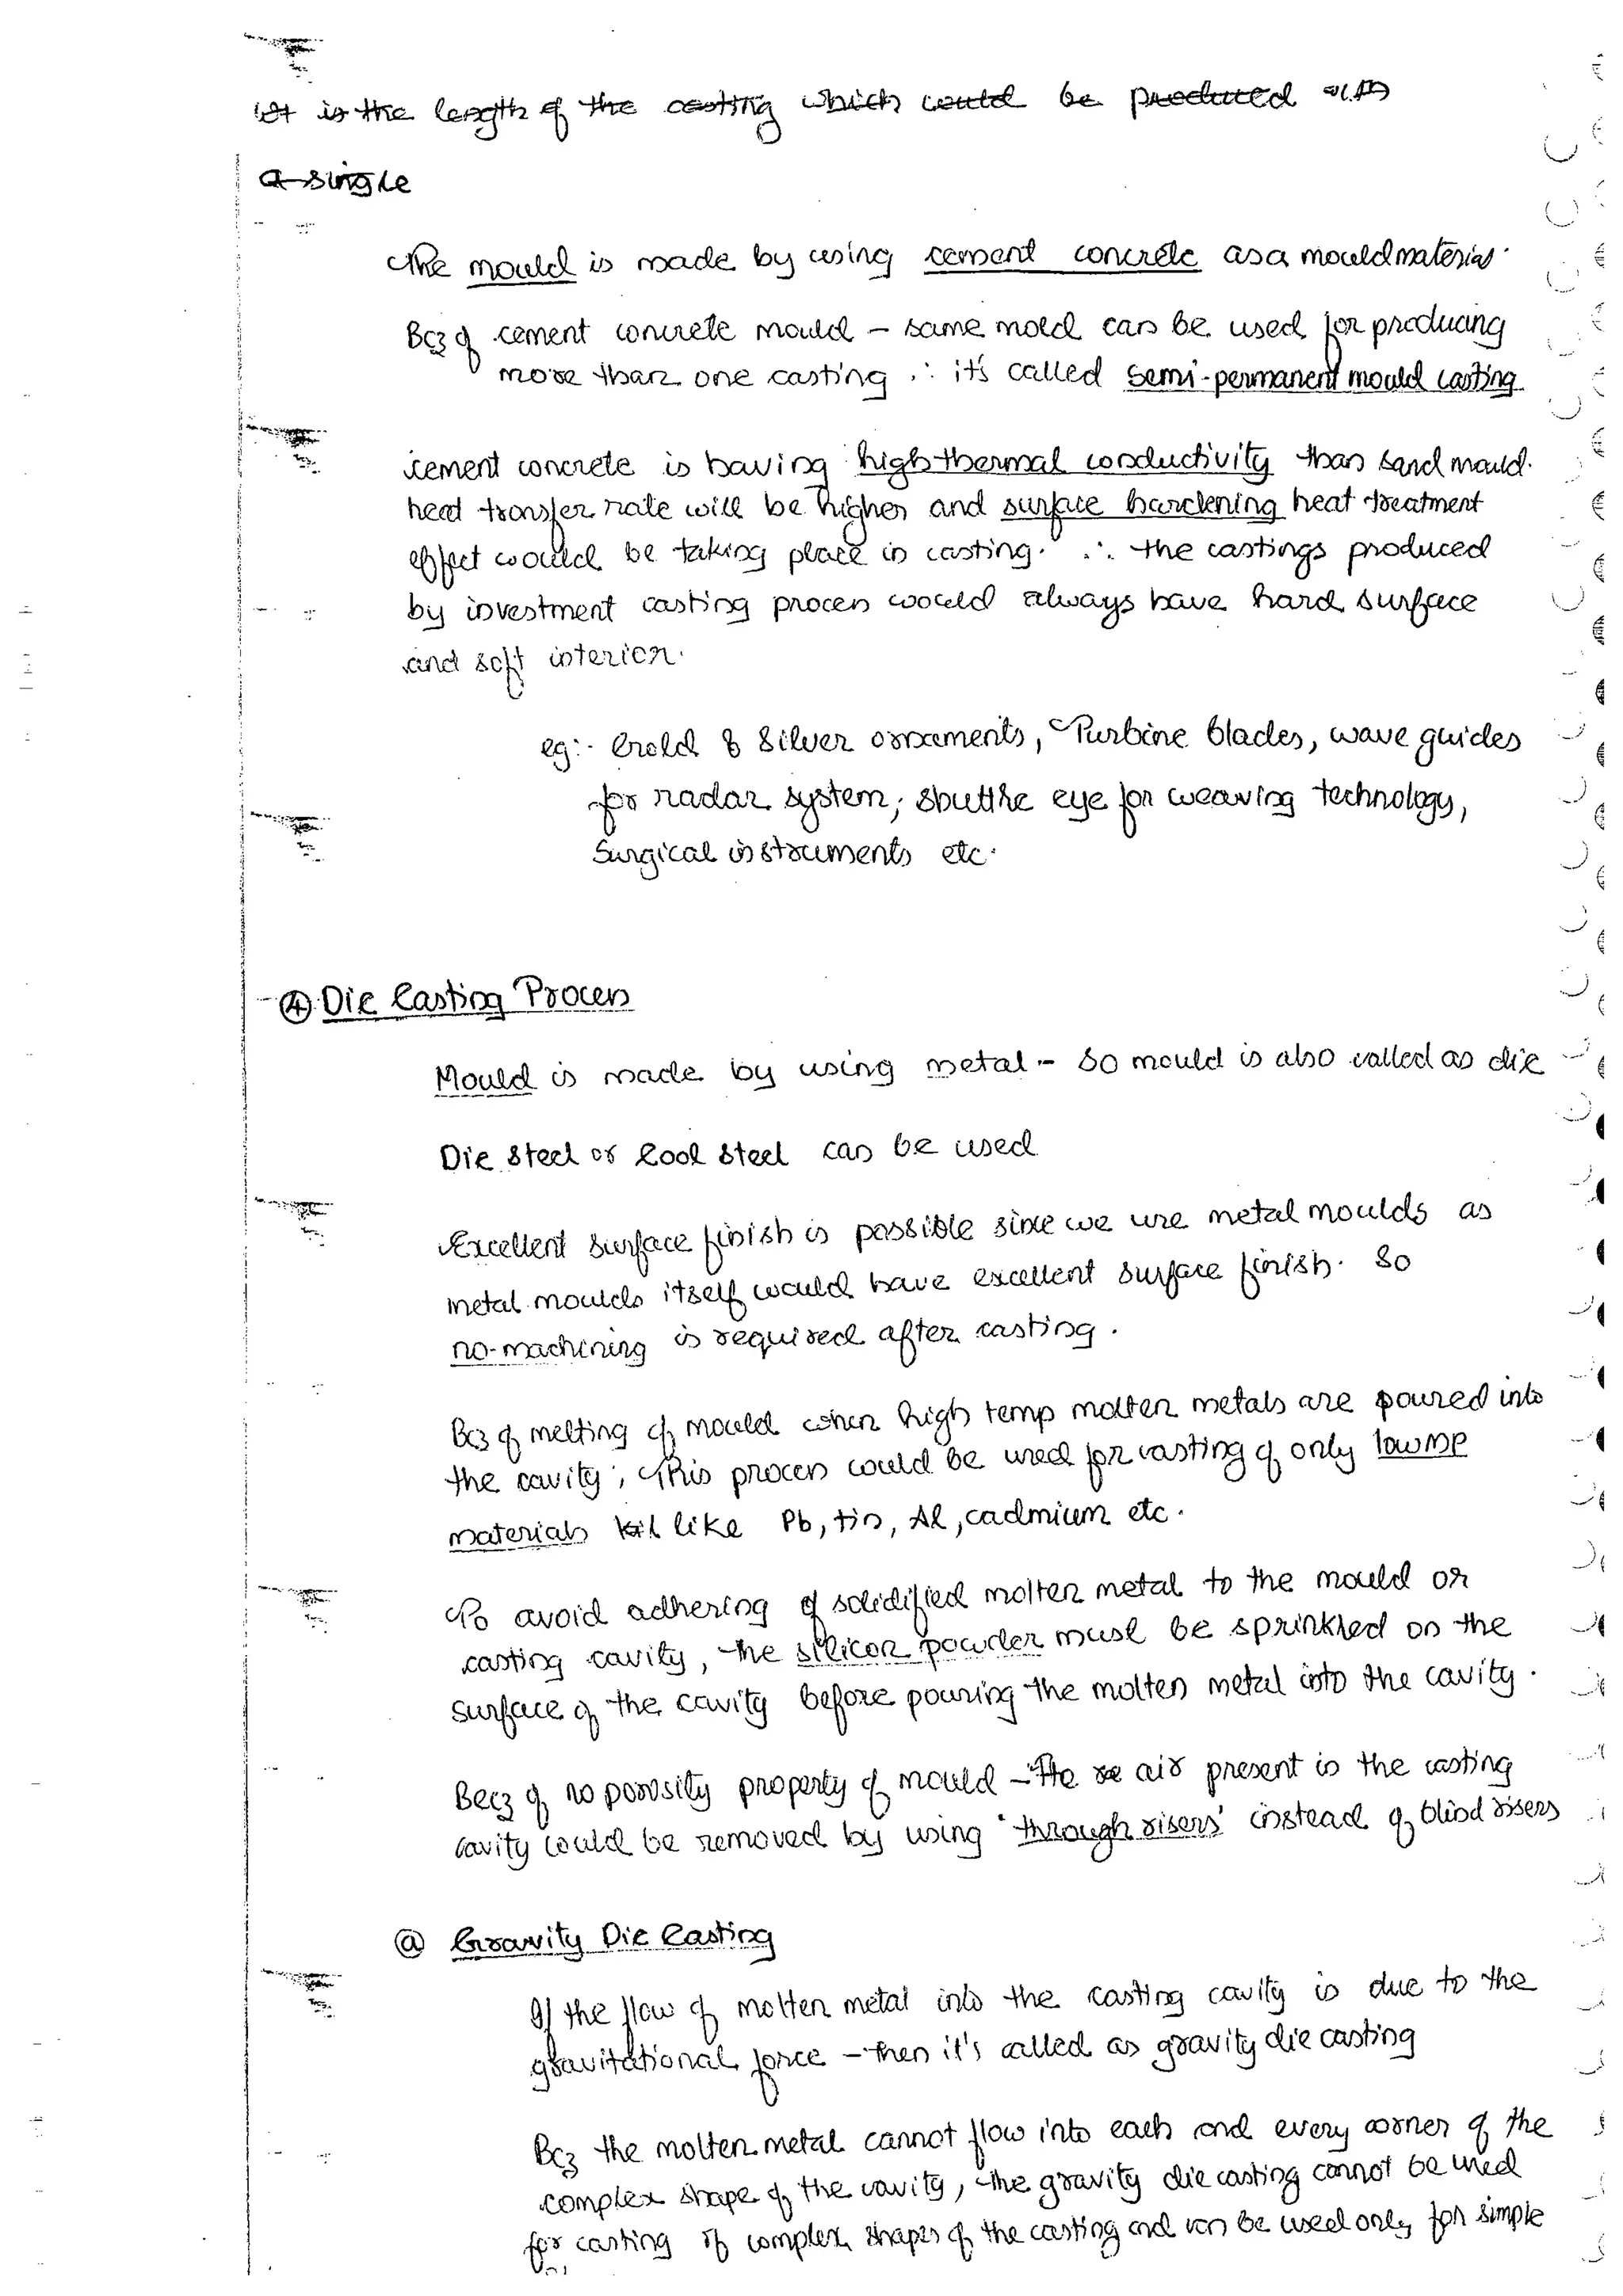 It is the length of the casting which could be produced with
a single
The mould is made by using cement concrete as a mould material.
Bcz of cement concrete mould - same mold can be used for producing
more than one casting ∴ it's called semi-permanent mould casting
cement concrete is having high thermal conductivity than sand mould.
heat transfer rate will be higher and surface hardening heat treatment
effect would be taking place in casting. ∴ the castings produced
by investment casting process would always have hard surface
and soft interior.
eg:- Gold & Silver ornaments, Turbine blades, wave guides
for radar system, shuttle eye for weaving technology,
Surgical instruments etc.
④ Die Casting Process
Mould is made by using metal - so mould is also called as die
Die steel or tool steel can be used
Excellent surface finish is possible since we use metal moulds as
metal moulds itself would have excellent surface finish. So
no-machining is required after casting.
Bcz of melting of mould when high temp molten metals are poured into
the cavity, This process could be used for casting of only low MP
materials like Pb, tin, Al, cadmium etc.
To avoid adhering of solidified molten metal to the mould or
casting cavity, the silicon powder must be sprinkled on the
surface of the cavity before pouring the molten metal into the cavity.
Becz of no porosity property of mould - the air present in the casting
cavity could be removed by using 'through risers' instead of blind risers
ⓐ Gravity Die Casting
If the flow of molten metal into the casting cavity is due to the
gravitational force - then it's called as gravity die casting
Bcz the molten metal cannot flow into each and every corner of the
complex shape of the cavity, the gravity die casting cannot be used
for casting of complex shapes of the casting and can be used only for simple